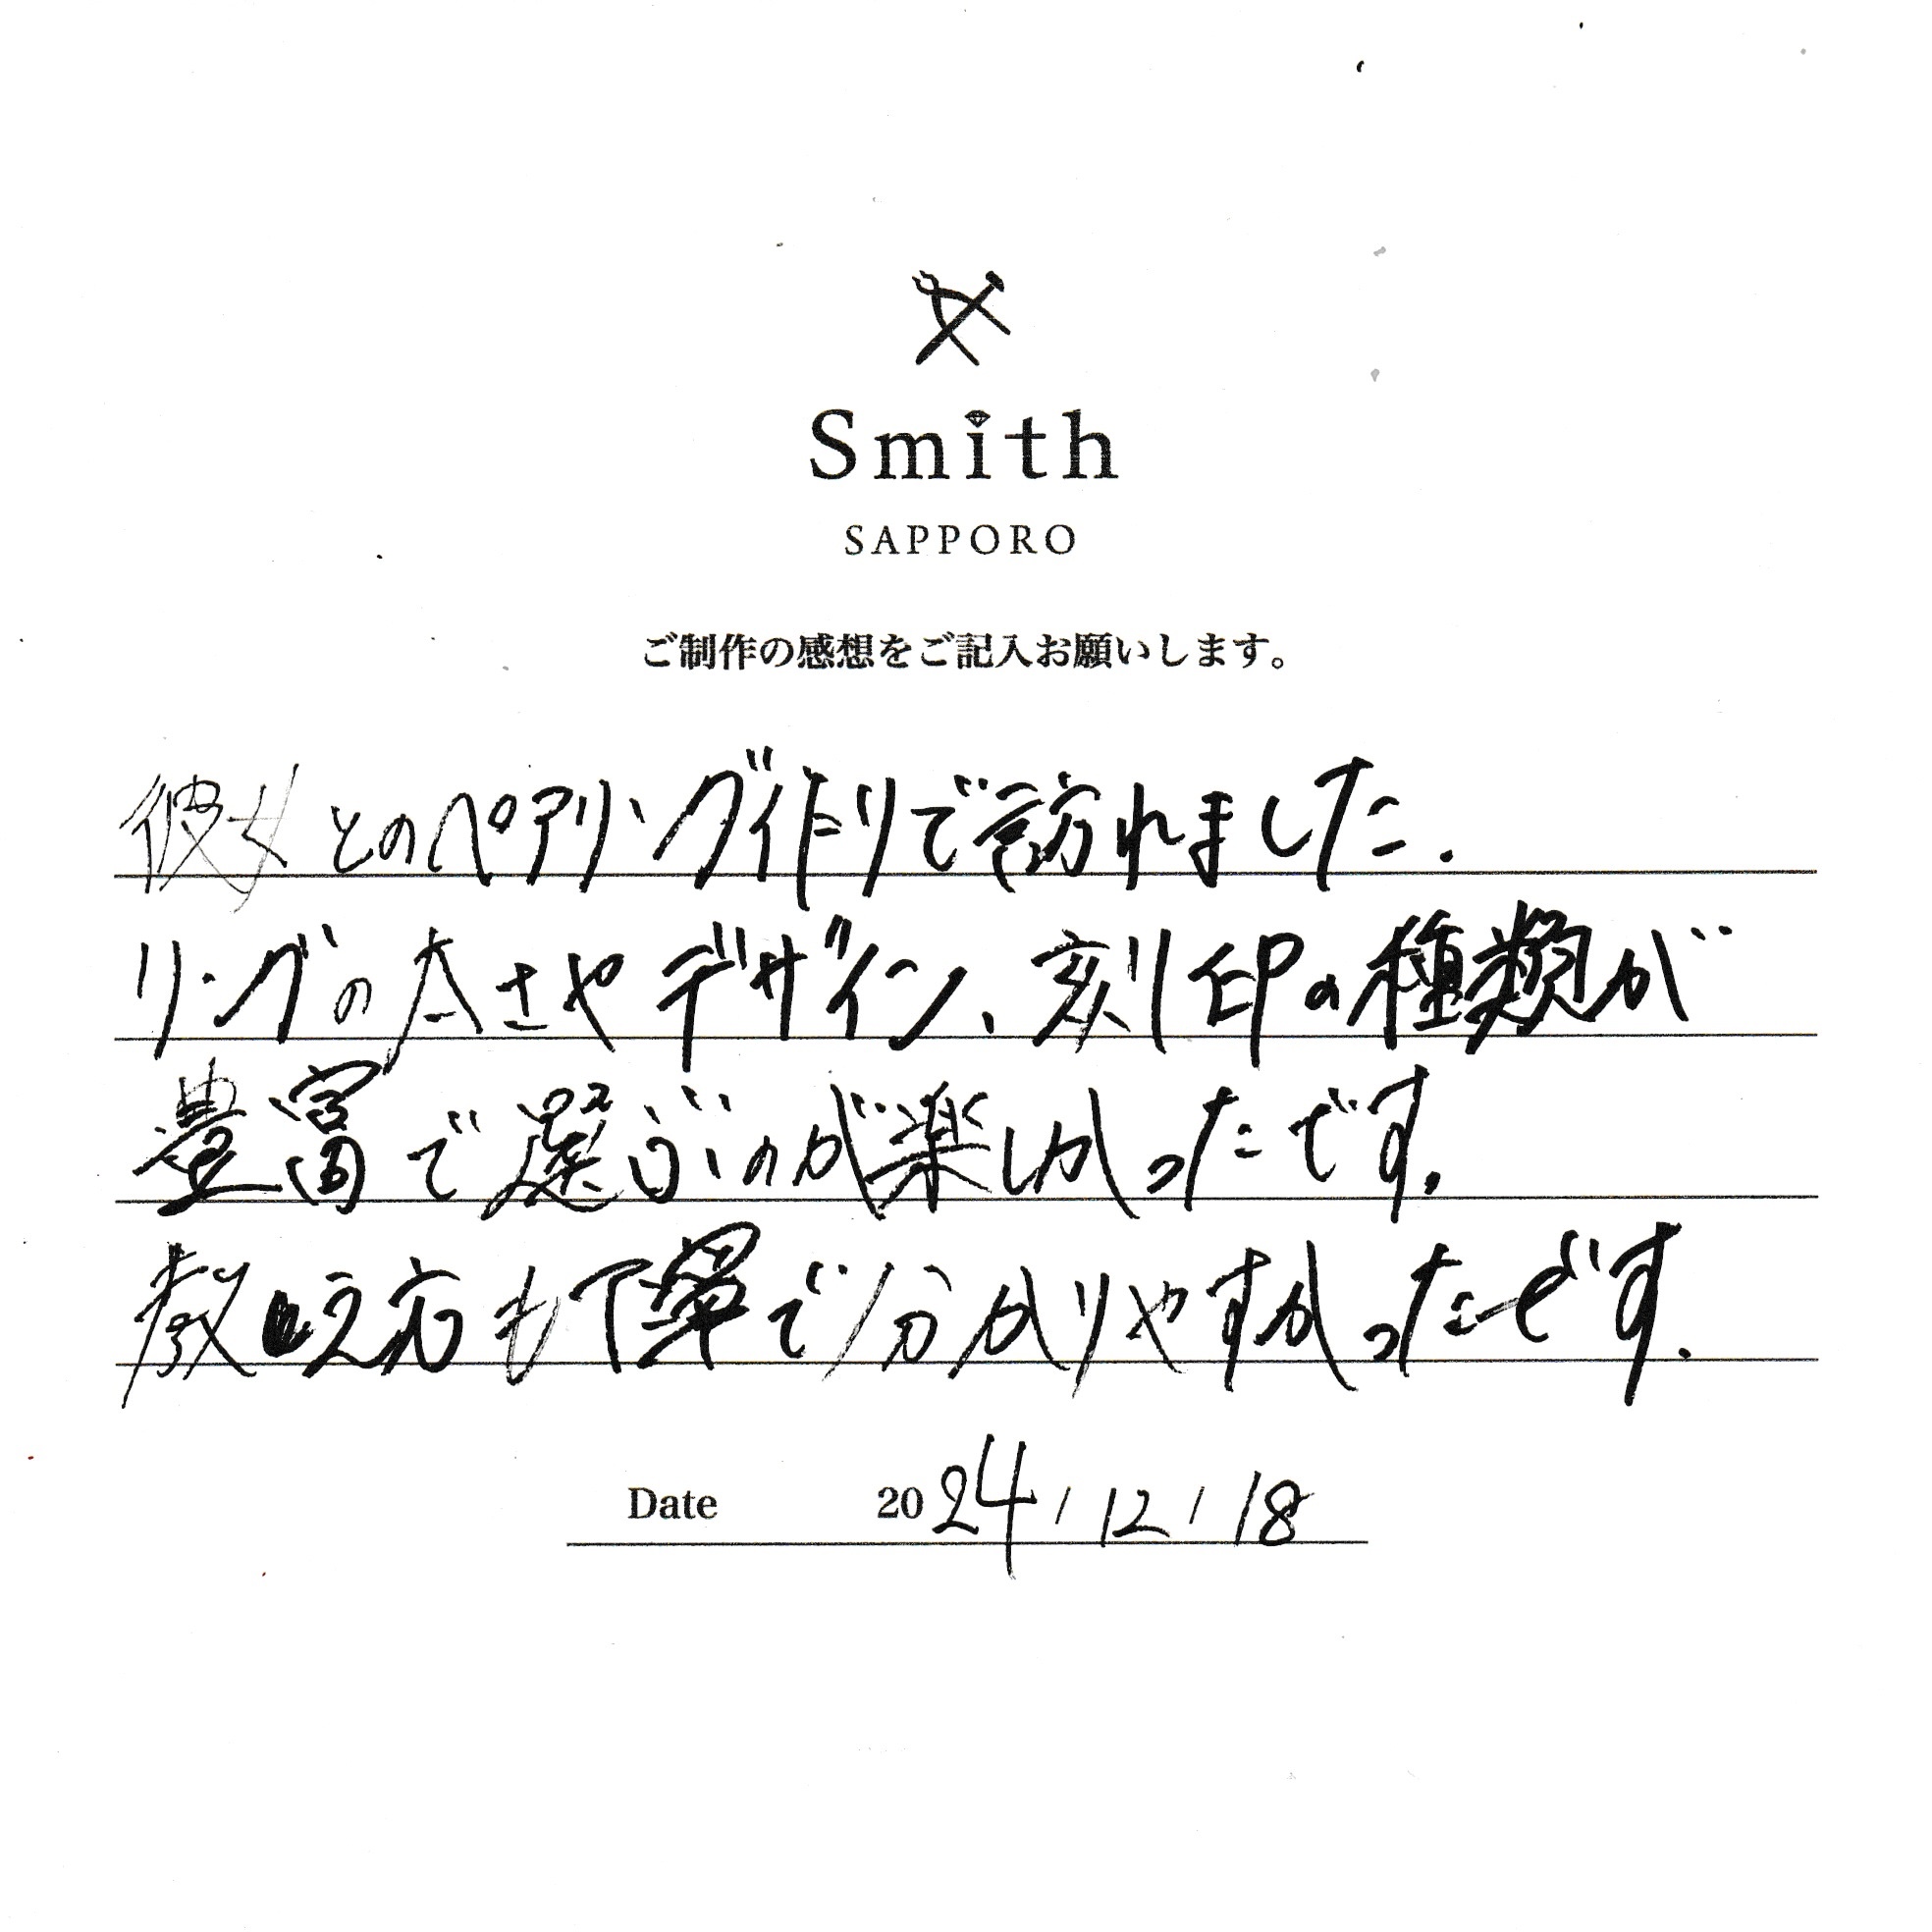 Smith
SAPPORO
ご制作の感想をご記入お願いします。
彼女とのペアリング作りで訪れました.
リングの太さやデザイン、刻印の種類が
豊富で選ぶのが楽しかったです.
教え方も丁寧で分かりやすかったです.
Date 2024/12/18